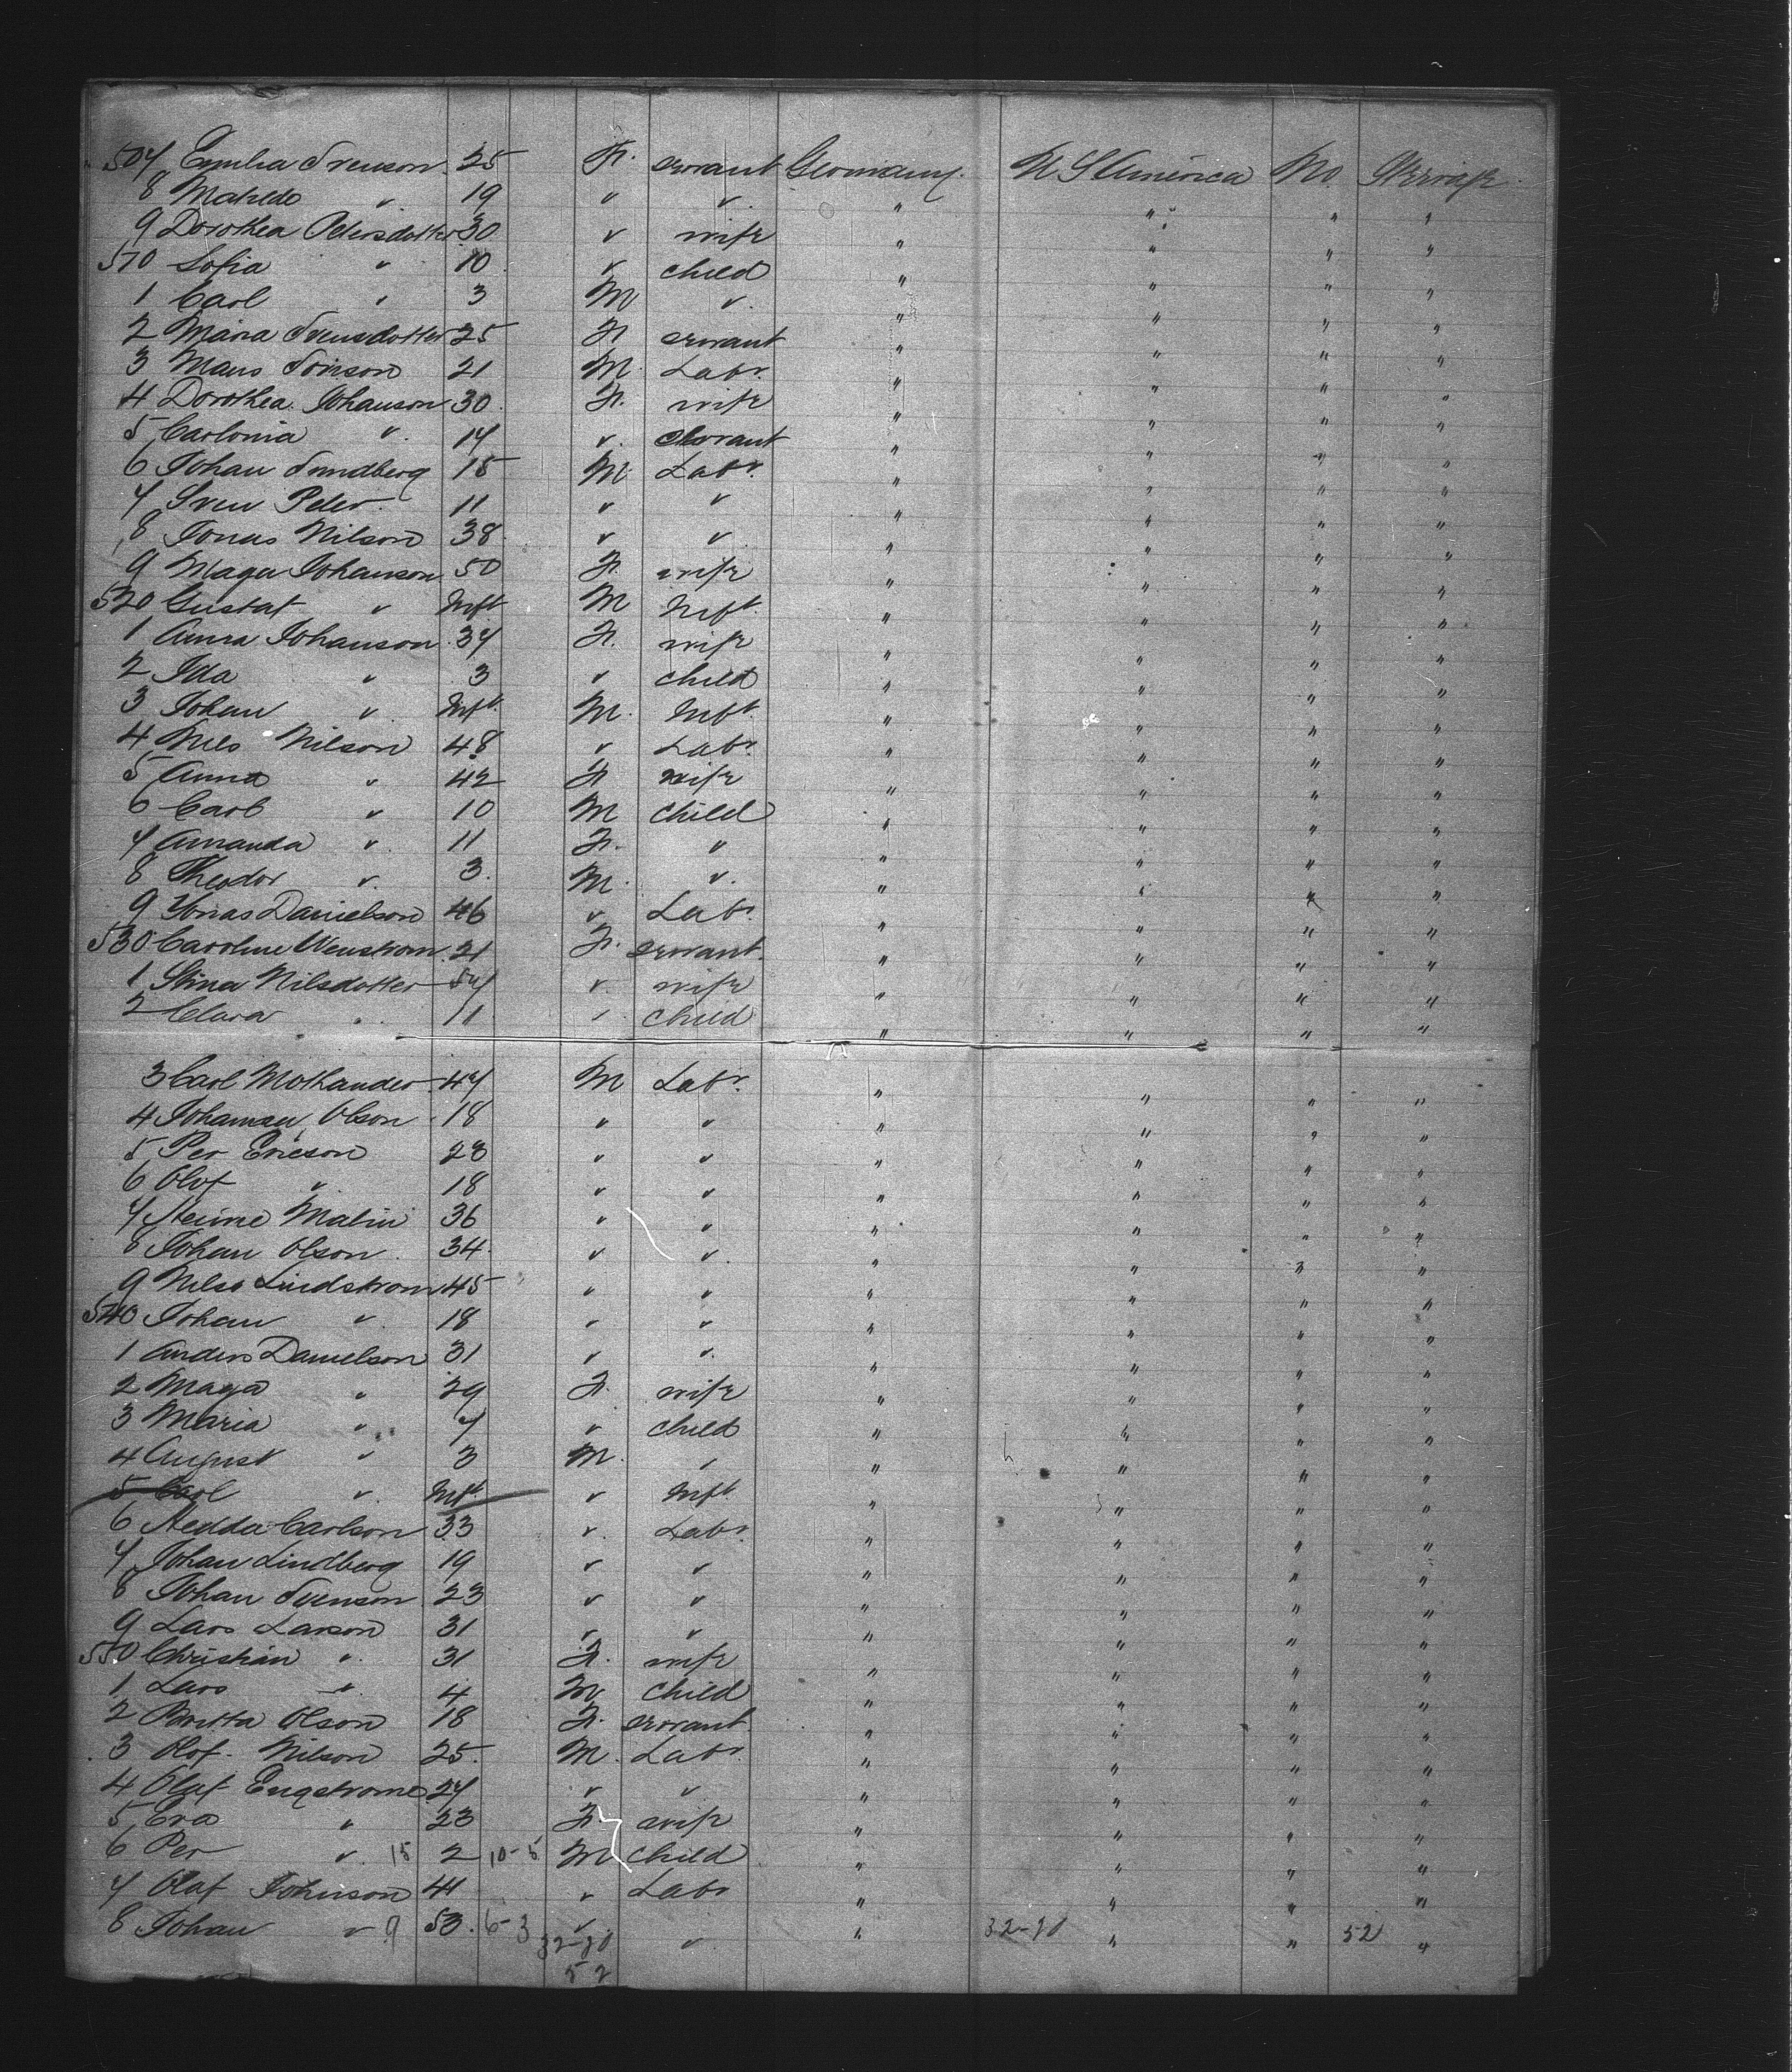 507 Emilia Svenson 25 F. servant Germany U S America No Steerage
8 Matilde " 19 " " " " " "
9 Dorothea Petersdotter 30 " wife " " " "
510 Sofia " 10 " child " " " "
1 Carl " 3 M " " " " "
2 Maria Svensdotter 25 F servant " " " "
3 Mans Jonson 21 M Labr. " " " "
4 Dorothea Johanson 30 F. wife " " " "
5 Carlonia " 14 " servant " " " "
6 Johan Sundberg 15 M Labr. " " " "
7 Sven Peter 11 " " " " " "
8 Jonas Nilson 38 " " " " " "
9 Maga Johanson 50 F. wife " " " "
520 Gustaf " Inft M Inft. " " " "
1 Anna Johanson 34 F. wife " " " "
2 Ida " 3 " child " " " "
3 Johan " Inft. M. Inft. " " " "
4 Nils Nilson 48 " Labr. " " " "
5 Anna " 42 F wife " " " "
6 Carl " 10 M child " " " "
7 Amanda " 11 F. " " " " "
8 Theodor " 3 M. " " " " "
9 Jonas Danielson 46 " Labr. " " " "
530 Caroline Wenstrom 21 F. servant " " " "
1 Stina Nilsdotter 54 " wife " " " "
2 Clara " 11 " child " " " "
3 Carl Mothander 47 M Labr. " " " "
4 Johannan Olson 18 " " " " " "
5 Per Ericson 23 " " " " " "
6 Olof " 18 " " " " " "
7 Malin 36 " " " " " "
8 Johan Olson 34 " " " " " "
9 Nilso Lindstrom 45 " " " " " "
540 Johan " 18 " " " " " "
1 Anders Danielson 31 " " " " " "
2 Maga " 29 F. wife " " " "
3 Maria " 7 " child " " " "
4 August " 3 M. " " " " "
5 Carl " Inft. " Inft. " " " "
6 Hedda Carlson 33 " Labr. " " " "
7 Johan Lindberg 19 " " " " " "
8 Johan Svenson 23 " " " " " "
9 Lars Larson 31 " " " " " "
550 Christian " 31 F. wife " " " "
1 Lars " 4 M child " " " "
2 Britta Olson 18 F. servant " " " "
3 Olof Nilson 25 M. Labr. " " " "
4 Olaf Engstrome 27 " " " " " "
5 Eva " 23 F. wife " " " "
6 Per " 15 2 10-5 M child " " " "
7 Olaf Johnson 41 " Labr " " " "
8 Johan " 9 53 6-3 " " " 32-20 " " 52 "
32-20
52